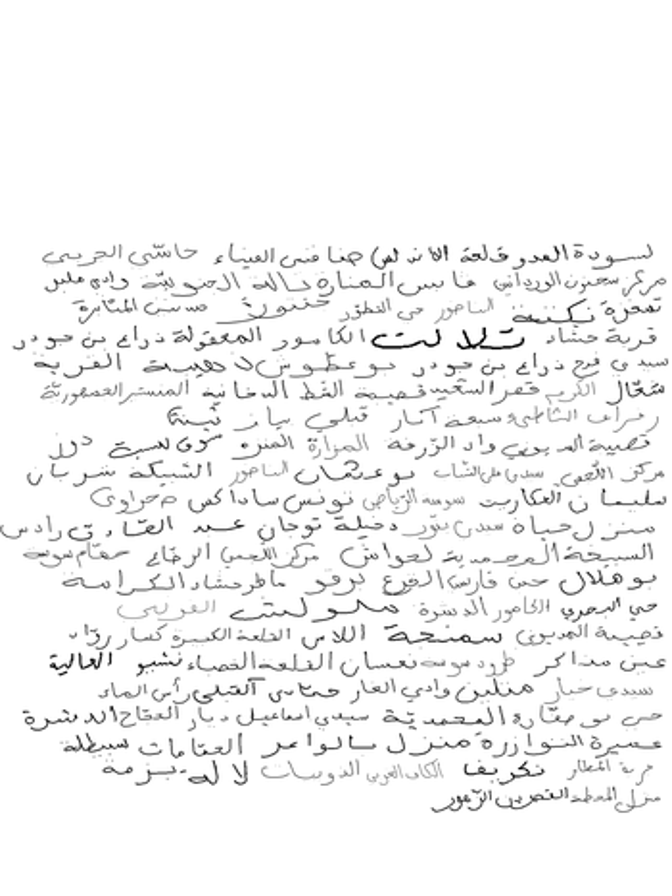 لسودة العدو قلعة الاندلس صفاقس الميناء حاسي الجربي
مركز سحنون الورداني قابس المنارة لالة الجنوبية وادي مليز
تمغزة نكيتة الناظور حي التطور خنتوش مسنن المنابرة
قرية حشاد تلالت الكامور المعقولة ذراع بن جودر
سيدي فرج ذراع بن جودر بوعطوش لاهيبة القرية
شعال الكريم قصر السعيد قصيبة الشط الدخانية المنستير الجمهورية
رفراف الشاطئ سبعة آبار قبلي بياز
قصيبة المديوني واد الزرقة المزارة المنزه سوق لسبت دوز
مركز اللجمي سيدي علي الشباب بوعثمان الناظور الشبيكة شربان
سليمان العكاريت سوسة الرياض تونس ساداكس صحراوي
منزل حياة سيدي بنور دخيلة توجان عبد الصادق رادس
السبخة المحمدية لحواش مركز اللجمي الرضاع حمام سوسة
بوهلال حي فارس الفرع برقو ماطر حشاد الكرامة
حي البحري الكامور الدشرة ملوليش القوبي
قصيبة المديوني سمنجة اللاس القلعة الكبيرة كسار روّاد
عين مذاكر طرود سوسة نعسان القلعة الخصباء نشيو العالية
سيدي خيار منلين وادي الغار حماس القبلي رأس الماء
حي بو صفارة المحمدية سيدي اسماعيل ديار الحجاج الدشرة
عميرة التوازرة منزل سالوا عمر العقامات سبيطلة
حرية المطار تكريفا الكاف الغربي الدويسات لالة بزمة
منزل المحطة القصرين الزهور